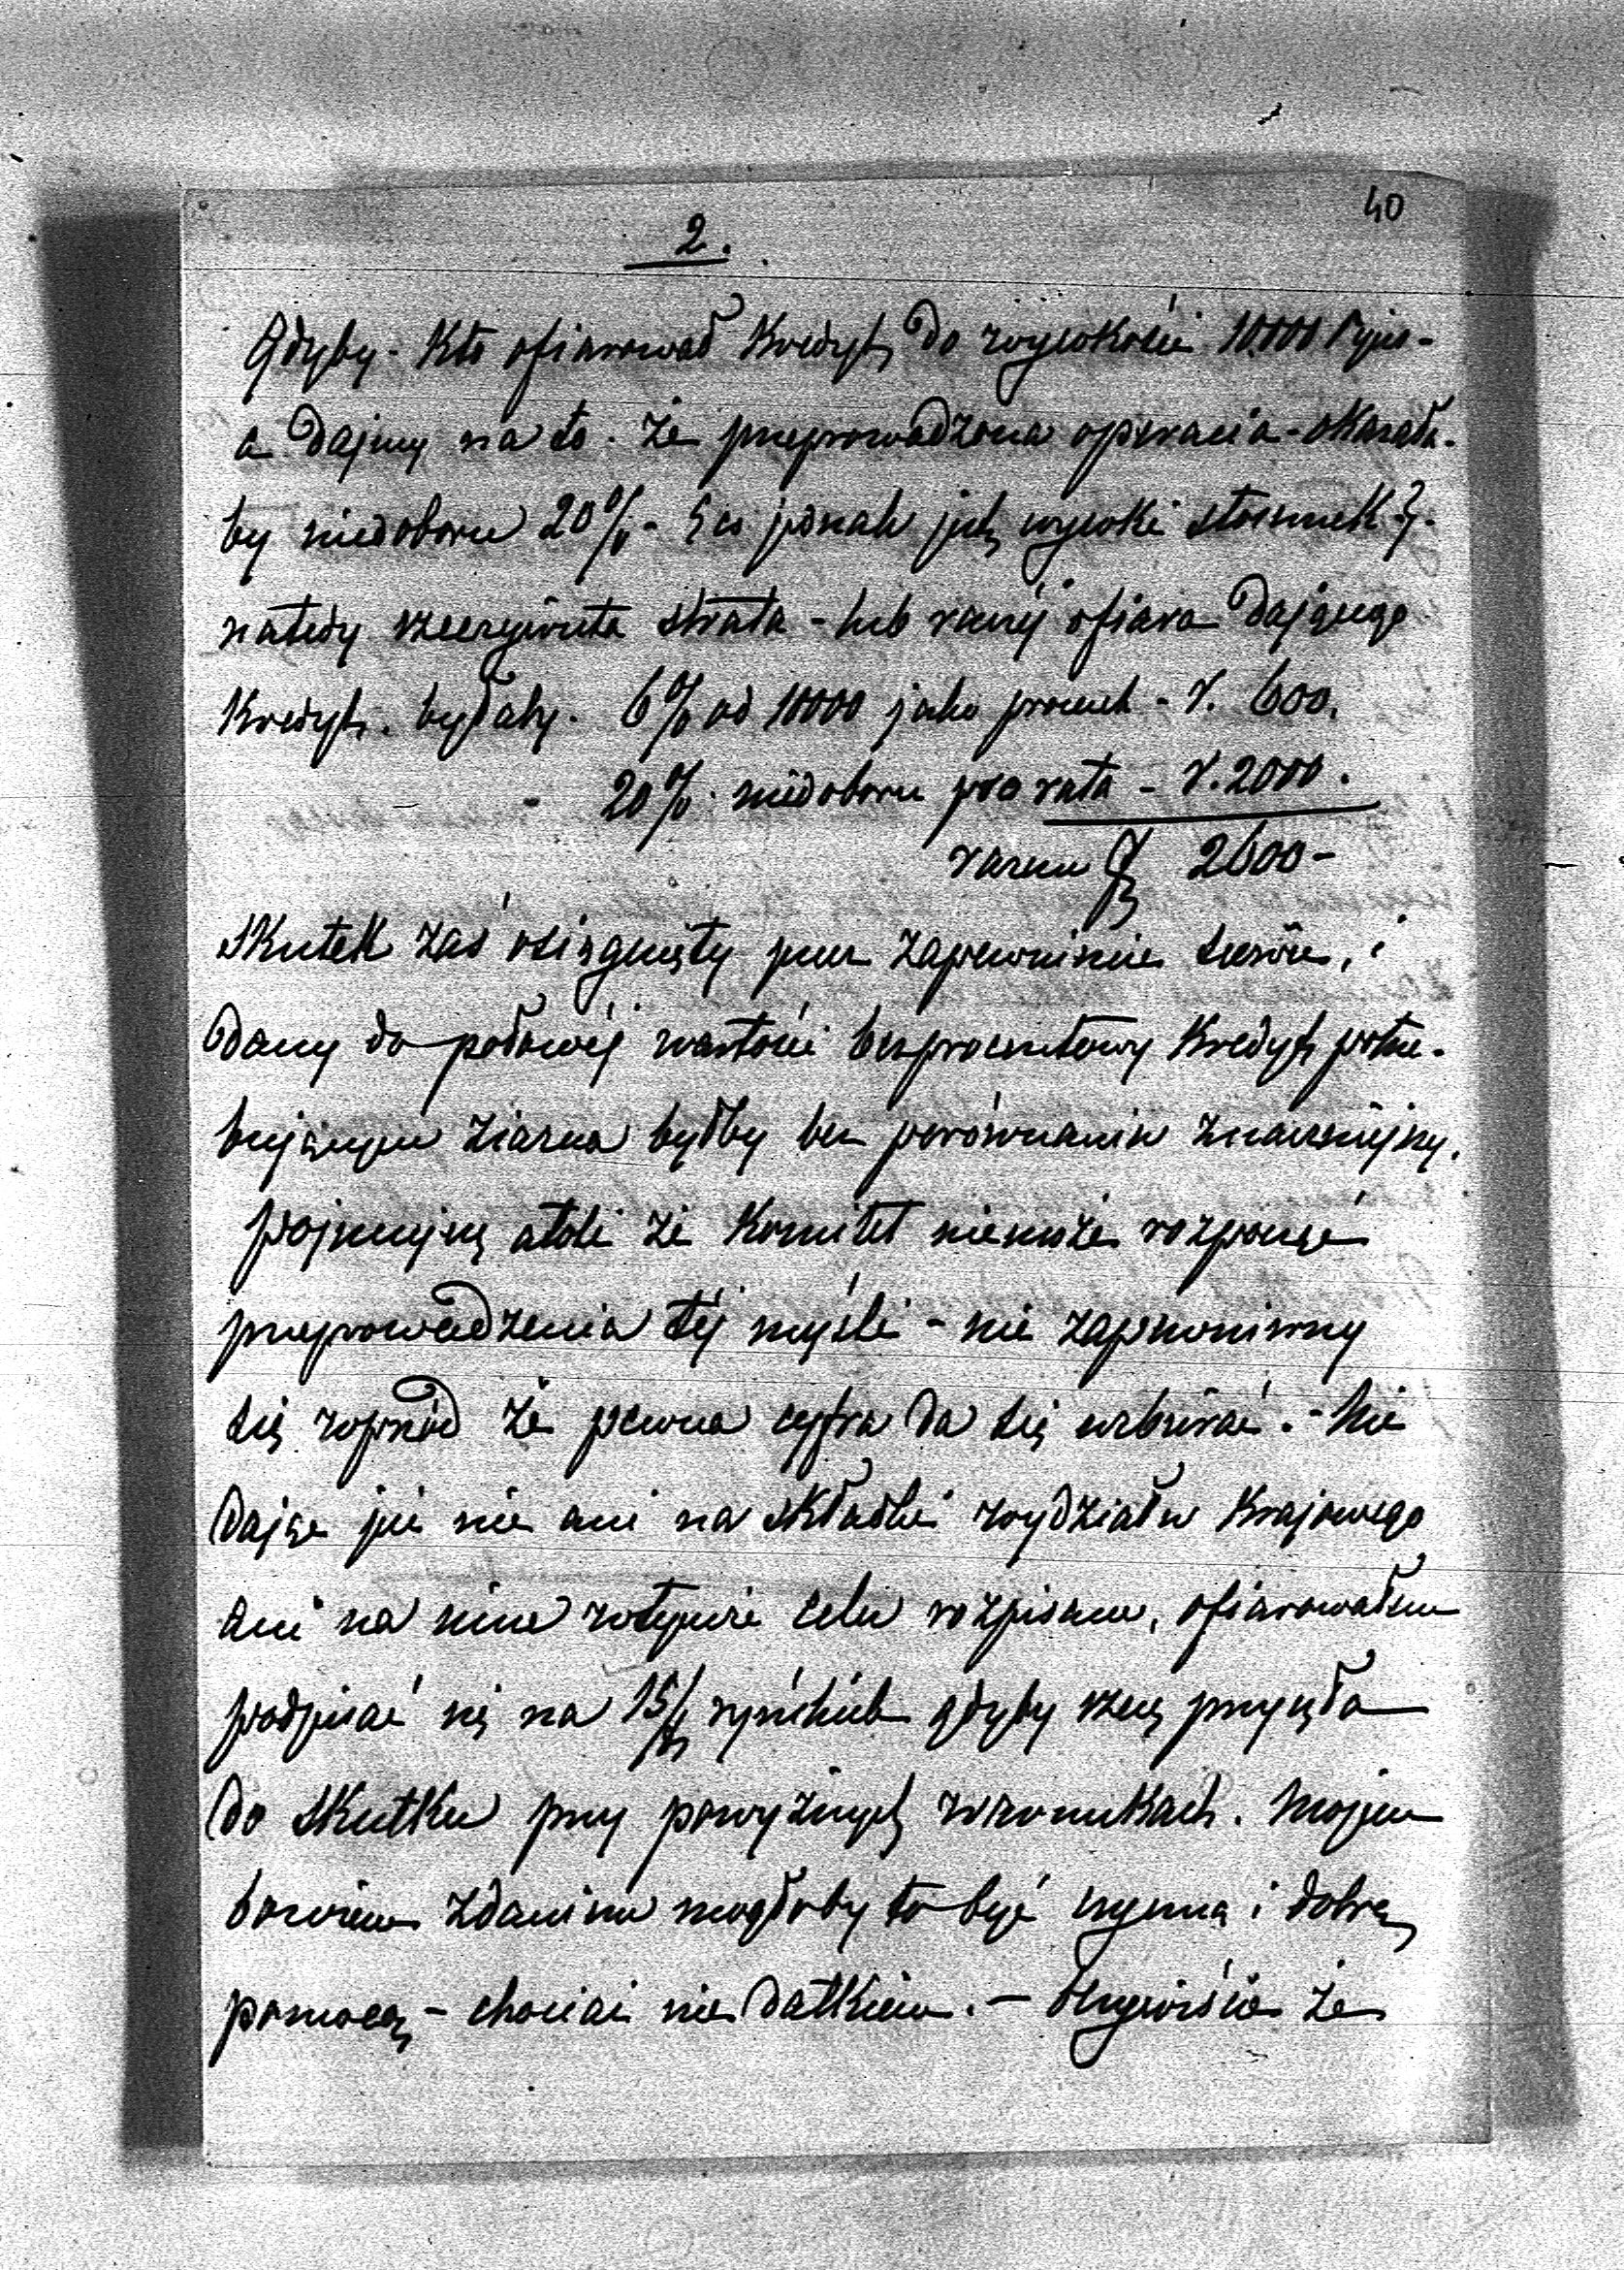 40
2.
Gdyby - Kto ofiarował Kredyt do wysokości 10.000 Ryńs-
a dajmy na to. że przeprowadzona operacia - okazała-
by niedoboru 20% - (co jednak jest wysoki stosunek).
natedy rzeczywista strata - lub raczéj ofiara dającego
Kredyt. byłaby. 6% od 10000 jako procent - r. 600.
- 20%. niedoboru pro rata - r. 2000.
razem 2600 -
Skutek zaś osiągnięty przez zapewnienie, i
dany do połowéj wartości bezprocentowy Kredyt potrze-
bującym ziarna byłby bez porównania znaczniejszy.
Pojmując atoli że Komitet niemoże rozpocząć
przeprowadzenia téj myśli - nie zapewniwszy
się wprzód że pewna cyfra da się uzbierać. - Nie
dając już nic ani na składki wydziału Krajowego
ani na inne w tymże celu rozpisane, ofiarowałem
podpisać się na 15/m ryńskich gdyby rzecz przyszła
do skutku przy powyższych warunkach. Mojem
bowiem zdaniem mogłoby to być czynną i dobrą
pomocą - chociaż nie datkiem. - Oczywiście że